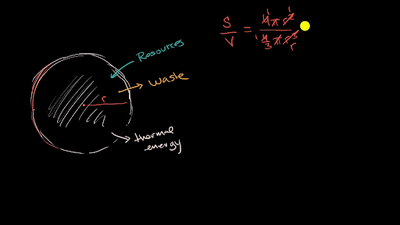 Resources
Waste
r
thermal
energy
S/V = 4πr²/(4/3 πr³)
1
1
1
r